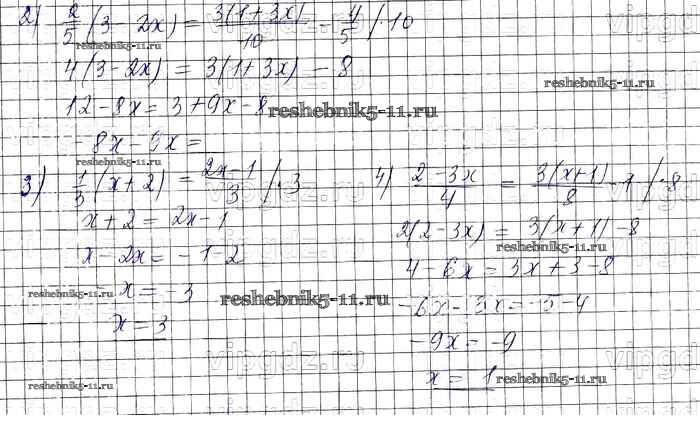 2) 2/5 (3 - 2x) = 3(1+3x)/10 - 4/5 / ·10
4(3-2x) = 3(1+3x) - 8
12-8x = 3+9x-8
-8x-9x =
3) 1/3 (x+2) = 2x-1/3 / ·3
x+2 = 2x-1
x-2x = -1-2
-x = -3
x = 3
4) 2-3x/4 = 3(x+1)/8 - 1 / ·8
2(2-3x) = 3(x+1) - 8
4-6x = 3x+3-8
-6x-3x = -5-4
-9x = -9
x = 1
reshebnik5-11.ru
reshebnik5-11.ru
reshebnik5-11.ru
reshebnik5-11.ru
reshebnik5-11.ru
reshebnik5-11.ru
reshebnik5-11.ru
reshebnik5-11.ru
reshebnik5-11.ru
vipgdz.ru
vipgdz.ru
vipgdz.ru